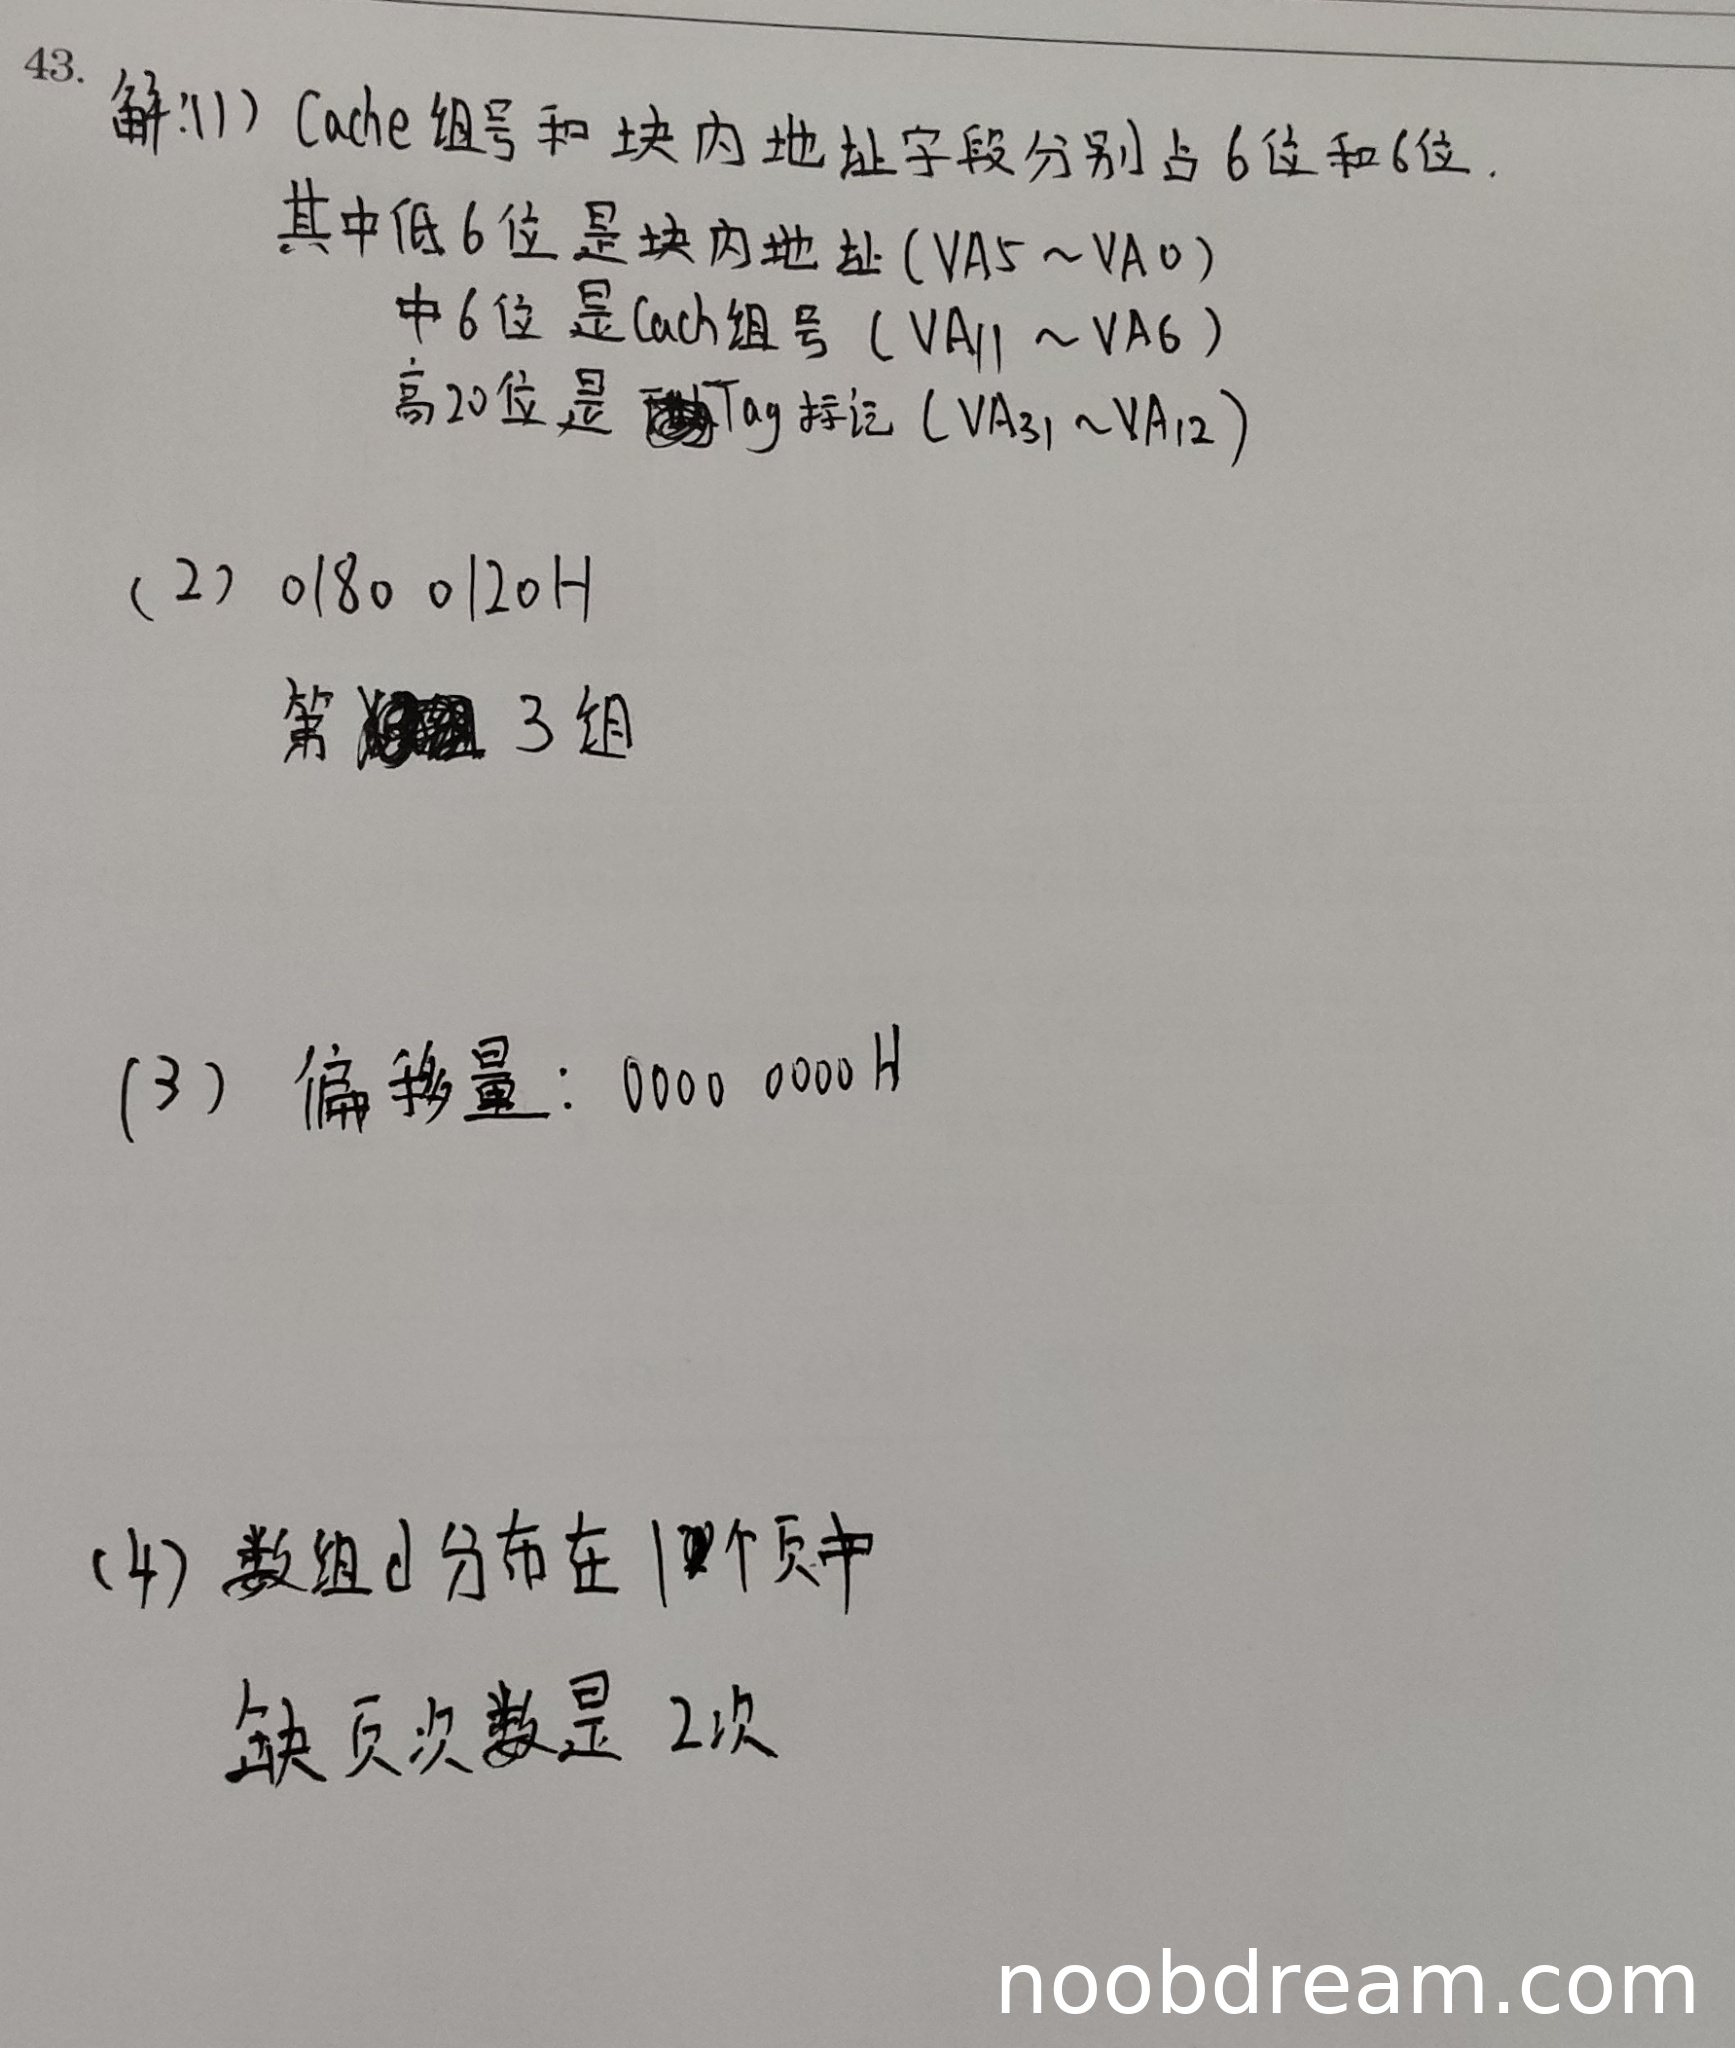 43.
解:(1) Cache组号和块内地址字段分别占6位和6位.
其中低6位是块内地址(VA5~VA0)
中6位是Cach组号(VA11~VA6)
高20位是Tag标记(VA31~VA12)
(2) 0180 0120H
第3组
(3) 偏移量: 0000 0000H
(4) 数组d分布在1个页中
缺页次数是 2次
noobdream.com